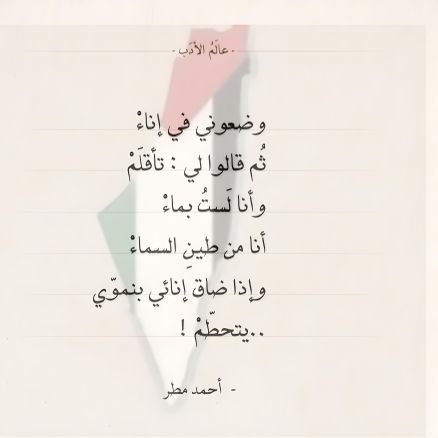 - عالَمُ الأدَب -
وضعوني في إناءْ
ثُم قالوا لي : تأقلَمْ
وأنا لَستُ بماءْ
أنا من طينِ السماءْ
وإذا ضاقَ إنائي بنموّي
..يتحطّمْ !
- أحمد مطر